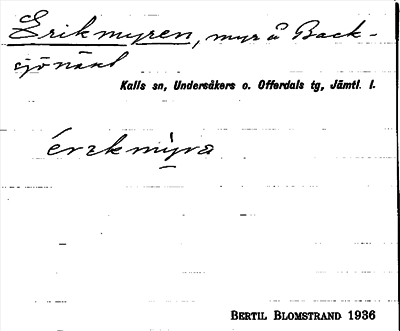 Erikmyren, myr å Back-
sjönäset
Kalls sn, Undersåkers o. Offerdals tg, Jämtl. l.
érɪkmỳra
BERTIL BLOMSTRAND 1936